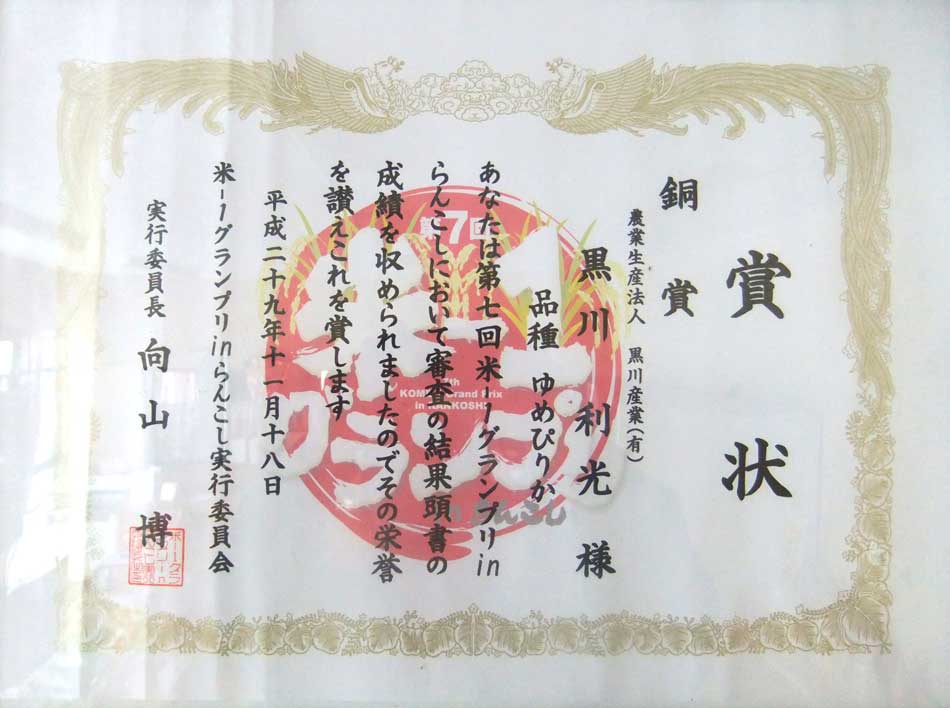 賞状
銅賞
農業生産法人 黒川産業(有)
黒川利光様
品種 ゆめぴりか
あなたは第七回米-1グランプリin
らんこしにおいて審査の結果頭書の
成績を収められましたのでその栄誉
を讃えこれを賞します
平成二十九年十一月十八日
米-1グランプリinらんこし実行委員会
実行委員長 向山博
第7回
米-1
グランプリ
Grand Prix
in RANKOSHI